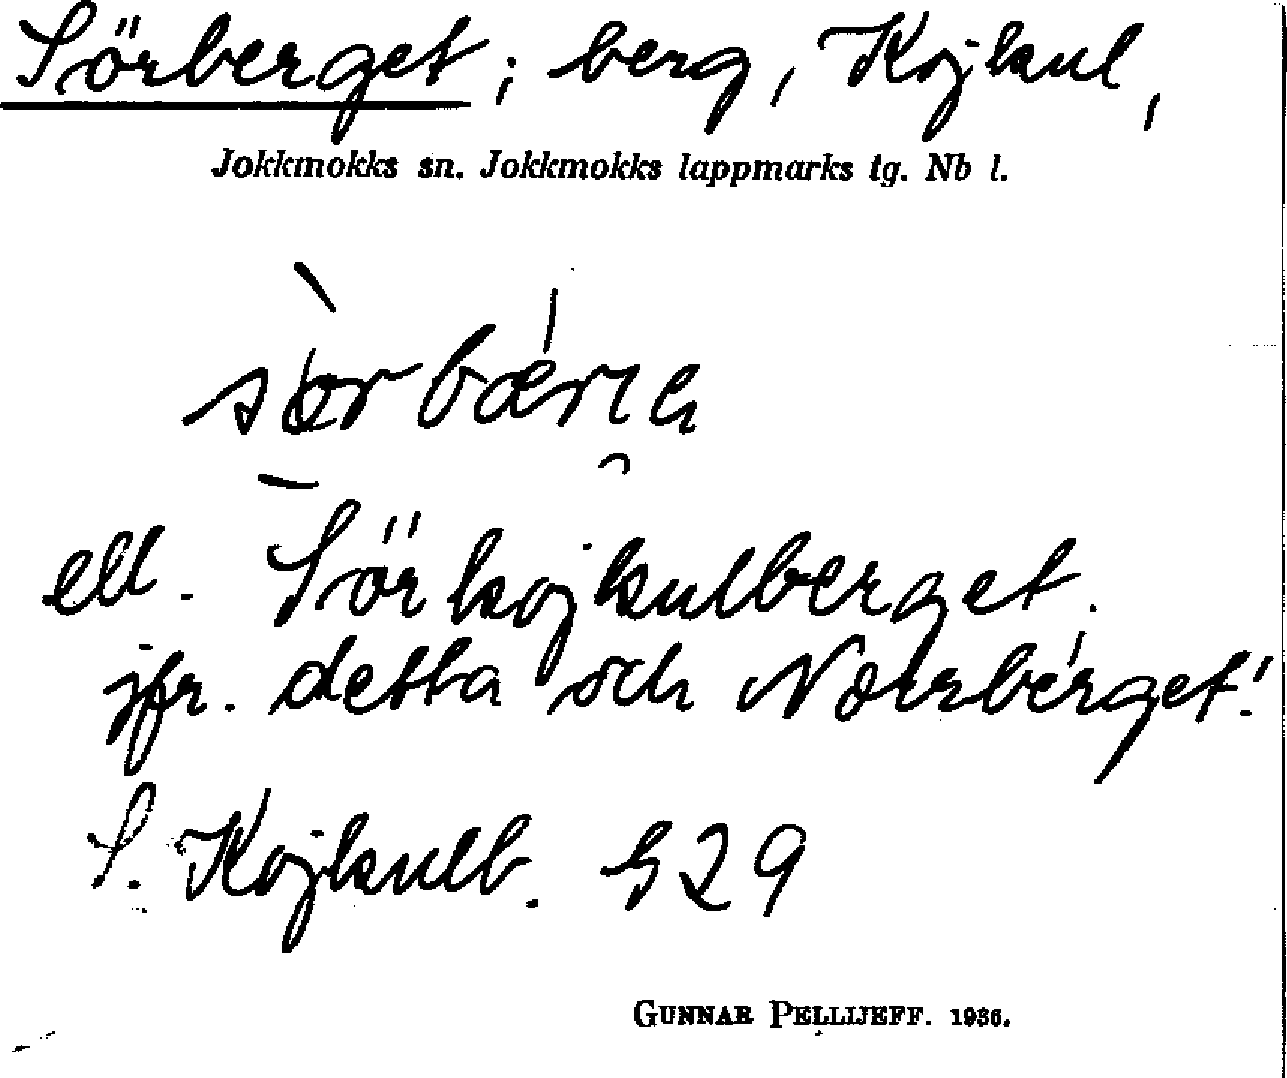 Sörberget; berg, Kojkul,
Jokkmokks sn. Jokkmokks lappmarks tg. Nb l.
ell. Sörkojkulberget.
jfr. detta och Norrberget!
S. Kojkulb. 529
GUNNAR PELLIJEFF. 1936.